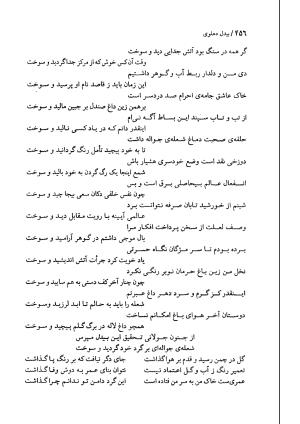 ۴۵۶ / بیدل دهلوی
گر همه در سنگ بود آتش جدایی دید و سوخت
وقت آن کس خوش که از مرکز جدا گردید و سوخت
دی من و دلدار ربط آب و گوهر داشتیم
این زمان باید ز قاصد نام او پرسید و سوخت
خاک عاشق جامه‌ی احرام صد دردسر است
برهمن زین داغ صندل بر جبین مالید و سوخت
از تب و تاب سپند این بساط آگه نی‌ام
اینقدر دانم که در یاد کسی نالید و سوخت
حلقه‌ی صحبت دماغ شعله‌ی جواله داشت
تا به خود پیچید تأمل رنگ گردانید و سوخت
دوزخی نقد است وضع خودسری هشیار باش
شمع اینجا یک رگ گردن به خود بالید و سوخت
انفعال عالم بیحاصلی برق است و بس
چون نفس خلقی دکان سعی بیجا چید و سوخت
شبنم از خورشید تابان صرفه نتوانست برد
عالمی آیینه با رویت مقابل دید و سوخت
وصف لعلت از سخن پرداخت افکار مرا
بال موجی داشتم در گوهر آرامید و سوخت
برده بودم تا سر مژگان نگاه حسرتی
یاد خویت کرد جرأت آتش اندیشید و سوخت
نخل من زین باغ حرمان نوبر رنگی نکرد
چون چنار آخر کف دستی به هم سایید و سوخت
اینقدر کز گرم و سرد دهر داغ عبرتم
شعله را باید به حالم تا ابد لرزید و سوخت
دوستان آخر هوای باغ امکانم نساخت
همچو داغ لاله در برگ گلم پیچید و سوخت
از جنون جولانی تحقیق این بیدل مپرس
شعله‌ی جواله‌ای بر گرد خود گردید و سوخت
گل در چمن رسید و قدم بر هوا گذاشت جای دگر نیافت که بر رنگ پا گذاشت
تعمیر رنگ ز آب و گل اعتماد نیست نتوان بنای عمر به دوش وفا گذاشت
عمری‌ست خاک من به سر من فتاده است این گرد دامن تو ندانم چرا گذاشت